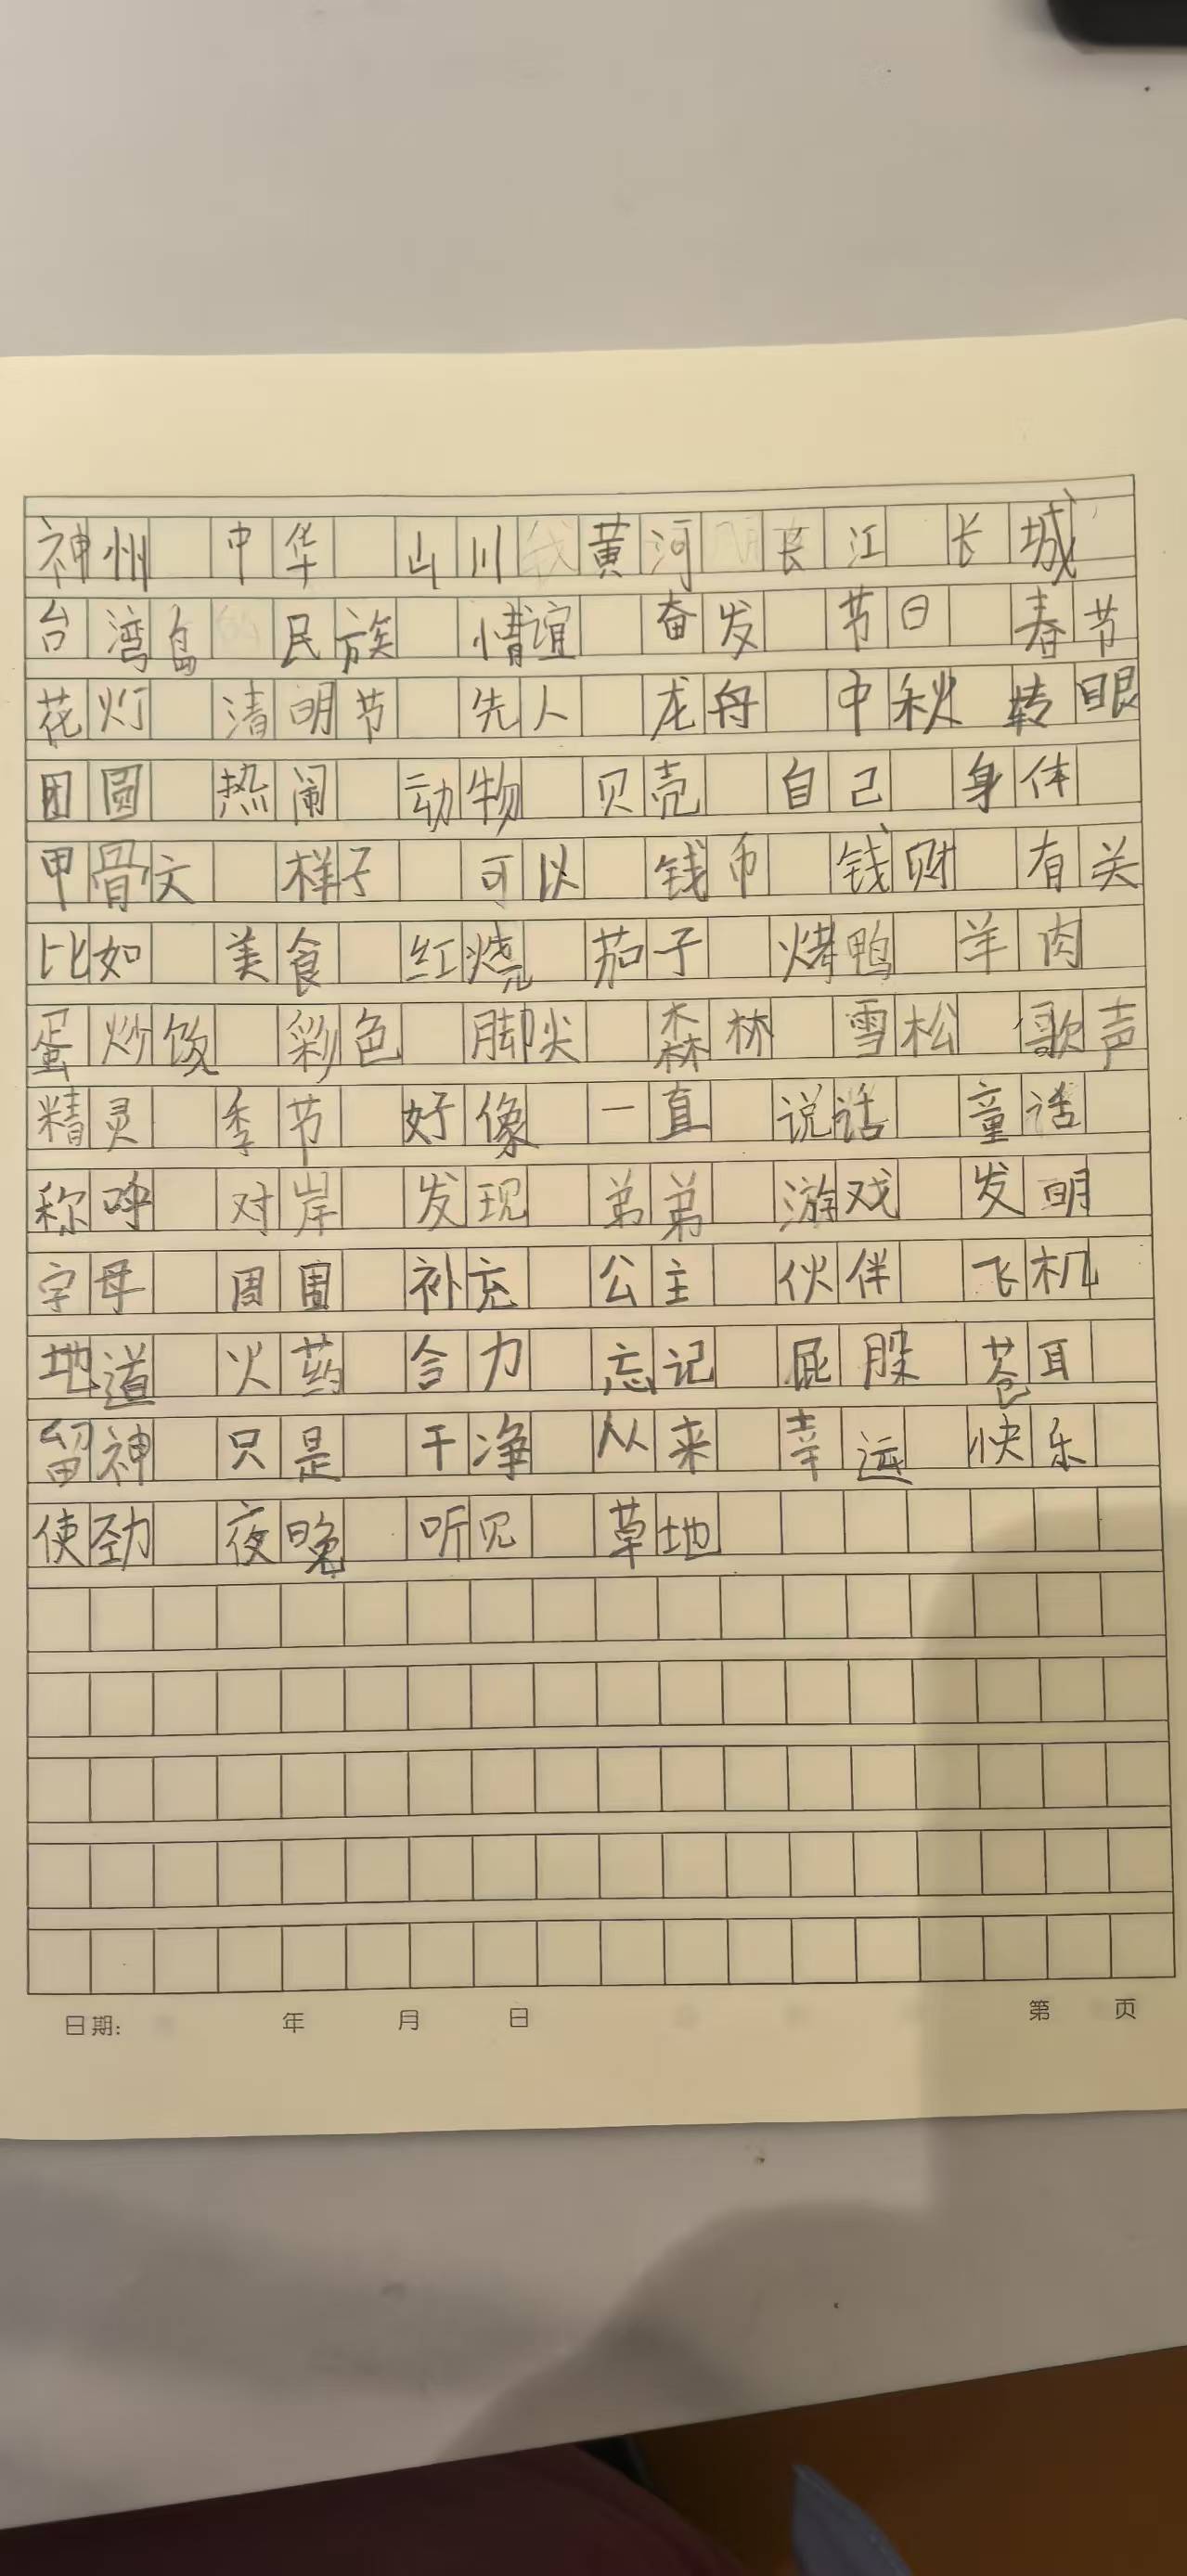 神州 中华 山川 黄河 长江 长城
台湾岛 民族 情谊 奋发 节日 春节
花灯 清明节 先人 龙舟 中秋 转眼
团圆 热闹 动物 贝壳 自己 身体
甲骨文 样子 可以 钱币 钱财 有关
比如 美食 红烧 茄子 烤鸭 羊肉
蛋炒饭 彩色 脚尖 森林 雪松 歌声
精灵 季节 好像 一直 说话 童话
称呼 对岸 发现 弟弟 游戏 发明
字母 周围 补充 公主 伙伴 飞机
地道 火药 合力 忘记 屁股 苍耳
留神 只是 干净 从来 幸远 快乐
使劲 夜晚 听见 草地
日期: 年 月 日 第 页